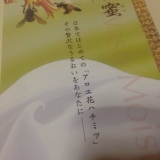 蜜
日本ではじめての「アロエ花ハチミツ」
その贅沢なうるおいをあなたに